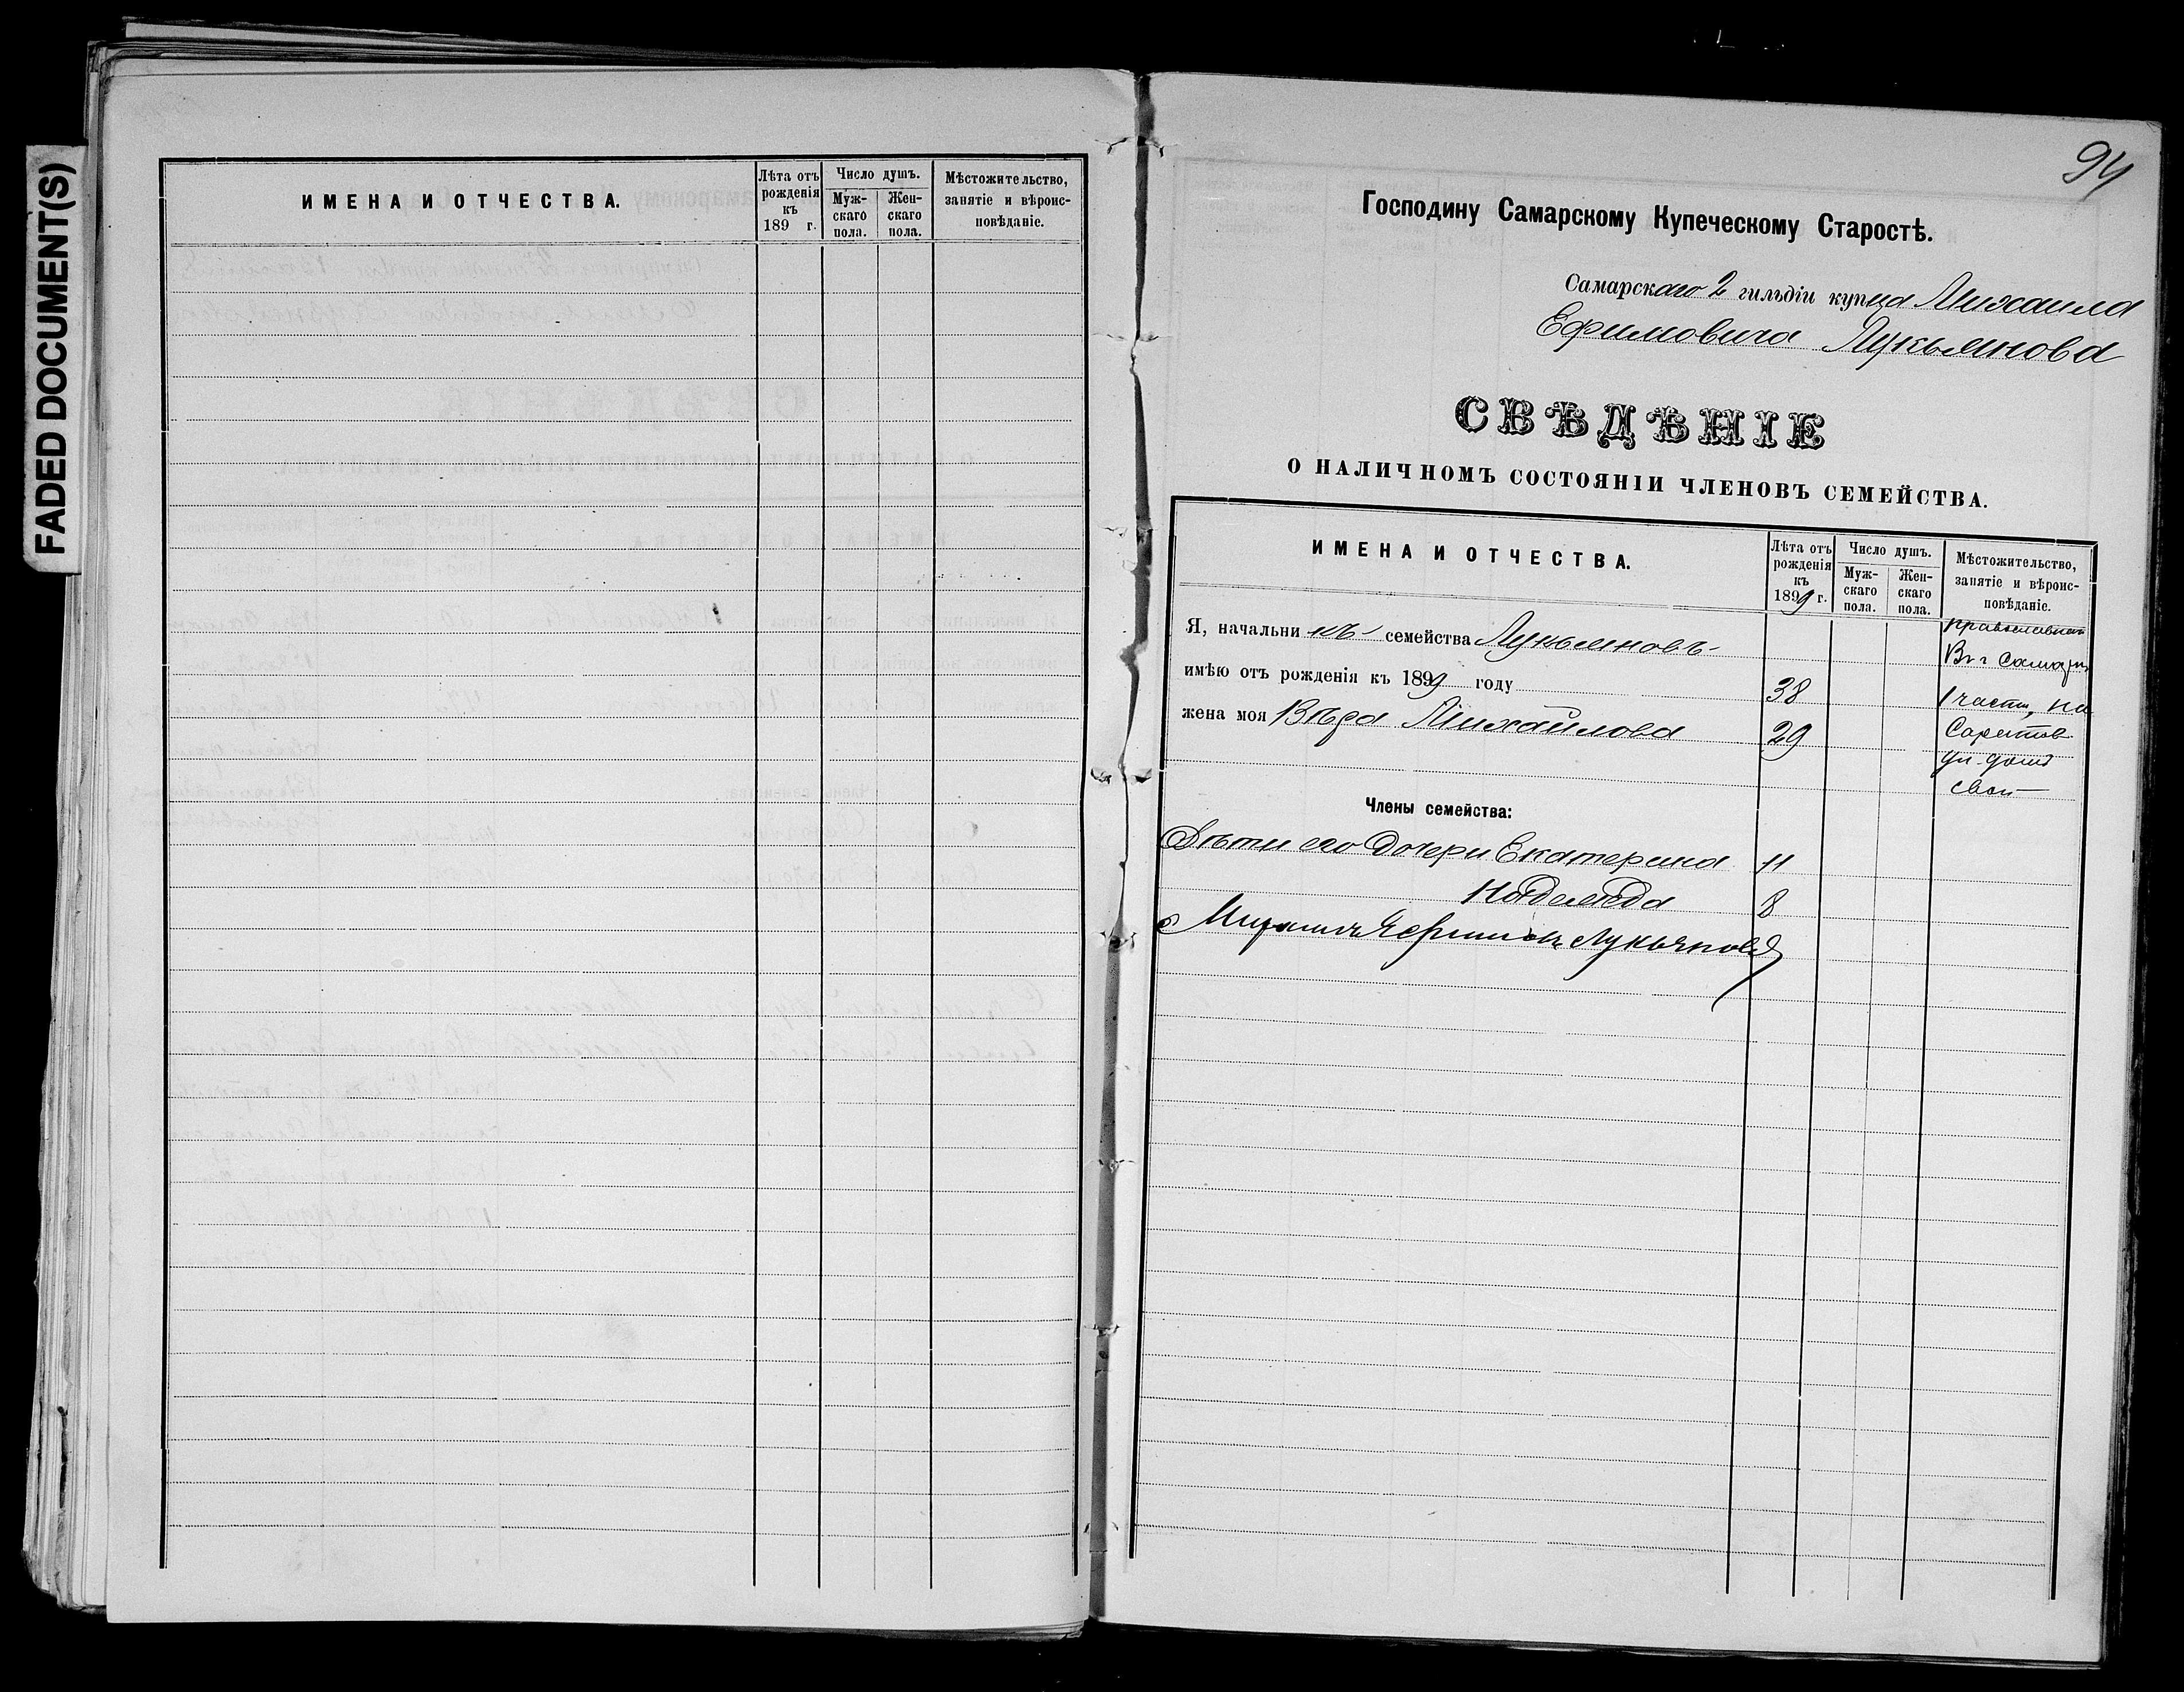 FADED DOCUMENT(S)
ИМЕНА И ОТЧЕСТВА.
Лѣта отъ рожденія къ 189 г.
Число душъ.
Мужскаго пола.
Женскаго пола.
Мѣстожительство, занятіе и вѣроисповѣданіе.
94
Господину Самарскому Купеческому Старостѣ.
Самарскаго 2 гильдіи купца Михаила
Ефимовича Лукьянова
СВѢДѢНІЕ
О НАЛИЧНОМЪ СОСТОЯНІИ ЧЛЕНОВЪ СЕМЕЙСТВА.
ИМЕНА И ОТЧЕСТВА.
Лѣта отъ рожденія къ 1899 г.
Число душъ.
Мужскаго пола.
Женскаго пола.
Мѣстожительство, занятіе и вѣроисповѣданіе.
Я, начальникъ семейства Лукьяновъ
имѣю отъ рожденія къ 1899 году 38
жена моя Вѣра Михайлова 29
православнаго
Въ г Самарѣ,
1 части, на
Саратов
ул. домъ
свой
Члены семейства:
Дѣти его Дочери Екатерина 11
Надежда 8
Михаилъ Ефимовъ Лукьяновъ